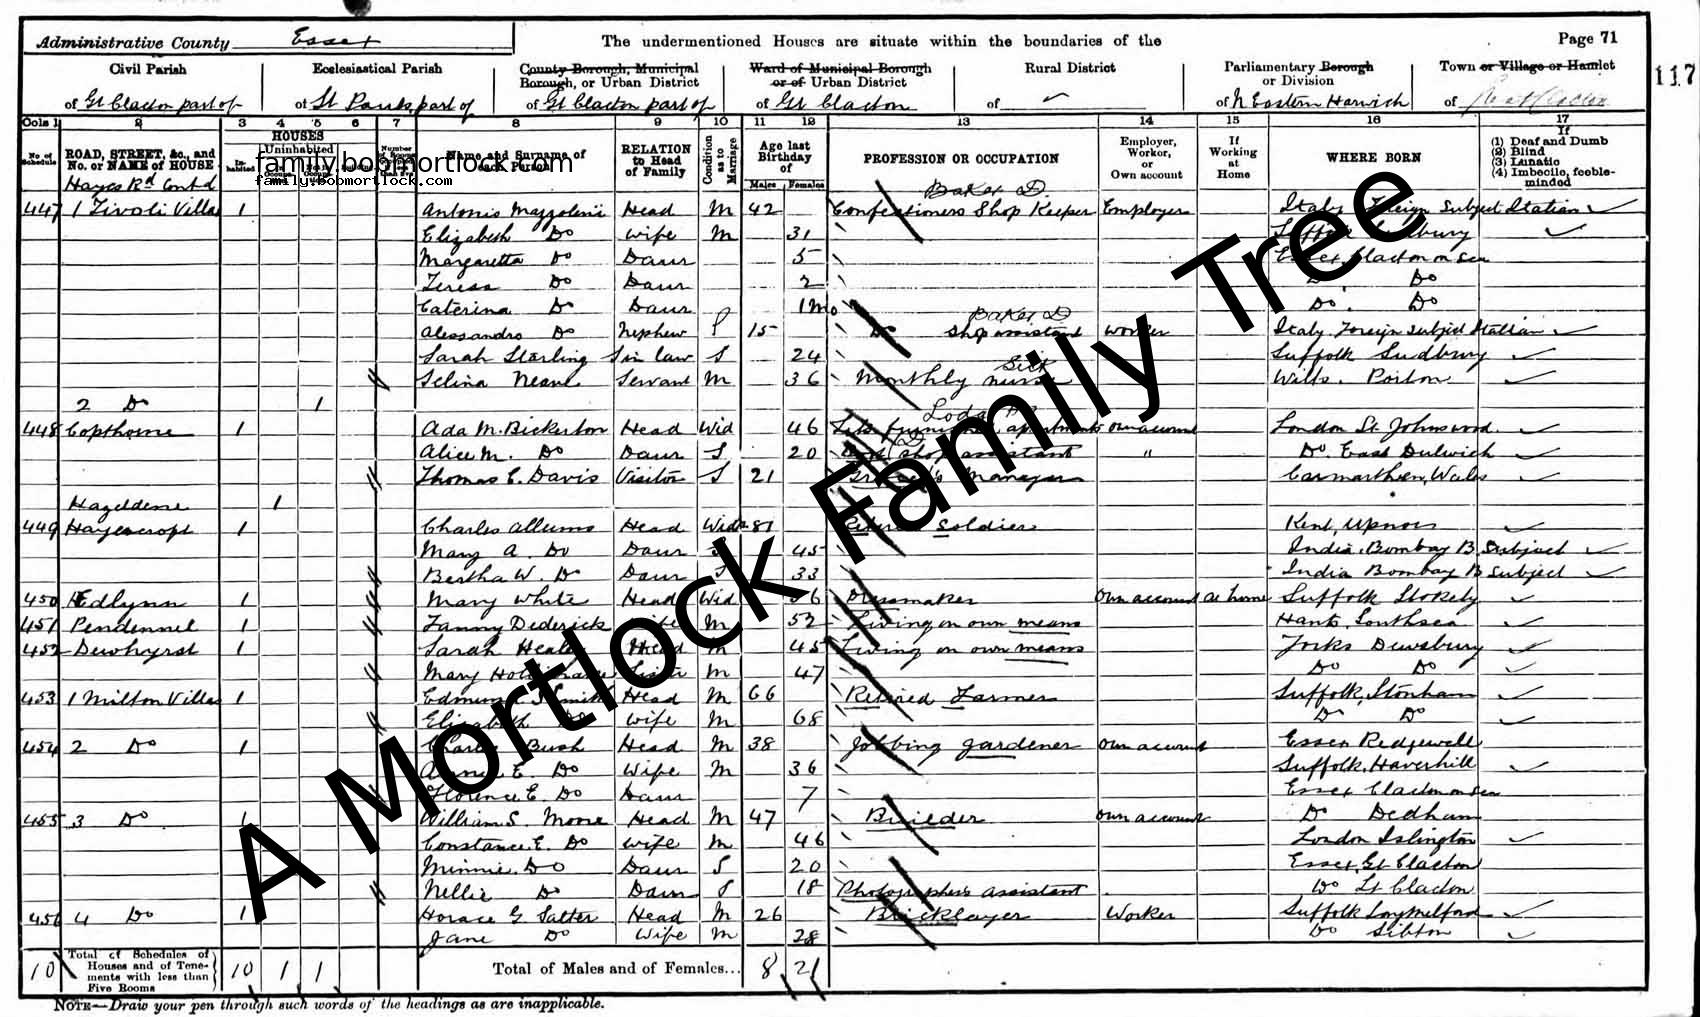 Administrative County Essex
The undermentioned Houses are situate within the boundaries of the
Page 71
117
Civil Parish
of Gt Clacton part of
Ecclesiastical Parish
of St Pauls part of
County Borough, Municipal
Borough, or Urban District
of Gt Clacton part of
Ward of Municipal Borough
or of Urban District
of Gt Clacton
Rural District
of
Parliamentary Borough
or Division
of N Eastern Harwich
Town or Village or Hamlet
of Great Clacton
Cols 1 2 3 4 5 6 7 8 9 10 11 12 13 14 15 16 17
No of Schedule
ROAD, STREET, &c., and
No. or NAME of HOUSE
HOUSES
Inhabited
Uninhabited
Name and Surname of
each Person
RELATION
to Head
of Family
Condition
as to
Marriage
Age last
Birthday
of
Males Females
PROFESSION OR OCCUPATION
Employer,
Worker,
or
Own account
If
Working
at
Home
WHERE BORN
If
(1) Deaf and Dumb
(2) Blind
(3) Lunatic
(4) Imbecile, feeble-
minded
family.bobmortlock.com
family.bobmortlock.com
Hayes Rd Contd
Baker D
447 1 Tivoli Villas 1 Antonio Mazzoleni Head M 42 Confectioners Shop Keeper Employer Italy Foreign Subject Italian
Elizabeth Do Wife M 31 Suffolk Sudbury
Margaretta Do Daur 5 Essex Clacton on Sea
Teresa Do Daur 2 Do Do
Caterina Do Daur 1 Mo Do Do
Baker D
Alessandro Do Nephew 15 Do Shop assistant Worker Italy Foreign Subject Italian
Sarah Starling Sin law S 24 Suffolk Sudbury
Sick
Selina Neave Servant M 36 Monthly nurse Wilts. Porton
2 Do 1
448 Copthorne 1 Ada M. Bickerton Head Wid 46 Lets furnished apartments own account London St Johns wood
Alice M. Do Daur S 20 shop assistant " Do. East Dulwich
Thomas E. Davis Visitor S 21 Grocer's Manager Carmarthen, Wales
Hazeldene 1
449 Hayescroft 1 Charles Allums Head Widr 81 Retired Soldier Kent, Upnor
Mary A. Do Daur S 45 India, Bombay B Subject
Bertha W. Do Daur S 33 India Bombay B Subject
450 Edlynn 1 Mary White Head Wid 56 Dressmaker Own account at home Suffolk
451 Pendennel 1 Fanny Dederick Wife M 52 Living on own means Hants, Southsea
452 Dewhyrst 1 Sarah Head M 45 Living on own means Yorks Dewsbury
Mary Sister M 47 Do Do
453 1 Milton Villas 1 Smith Head M 66 Retired Farmer Suffolk, Stonham
Elizabeth Do Wife M 68 Do Do
454 2 Do 1 Charles Bush Head M 38 Jobbing gardener own account Essex Ridgewell
Annie E. Do Wife M 36 Suffolk, Haverhill
Florence E. Do Daur 7 Essex Clacton on Sea
455 3 Do 1 William S. Moore Head M 47 Builder own account Do Dedham
Constance E. Do Wife M 46 London Islington
Minnie Do Daur S 20 Essex, Gt Clacton
Nellie Do Daur S 18 Photographers assistant Do Lt Clacton
456 4 Do 1 Horace G Salter Head M 26 Bricklayer Worker Suffolk Long Melford
Jane Do Wife M 28 Do Sibton
10 Total of Schedules of
Houses and of Tene-
ments with less than
Five Rooms
10 1 1 Total of Males and of Females... 8 21
NOTE—Draw your pen through such words of the headings as are inapplicable.
A Mortlock Family Tree